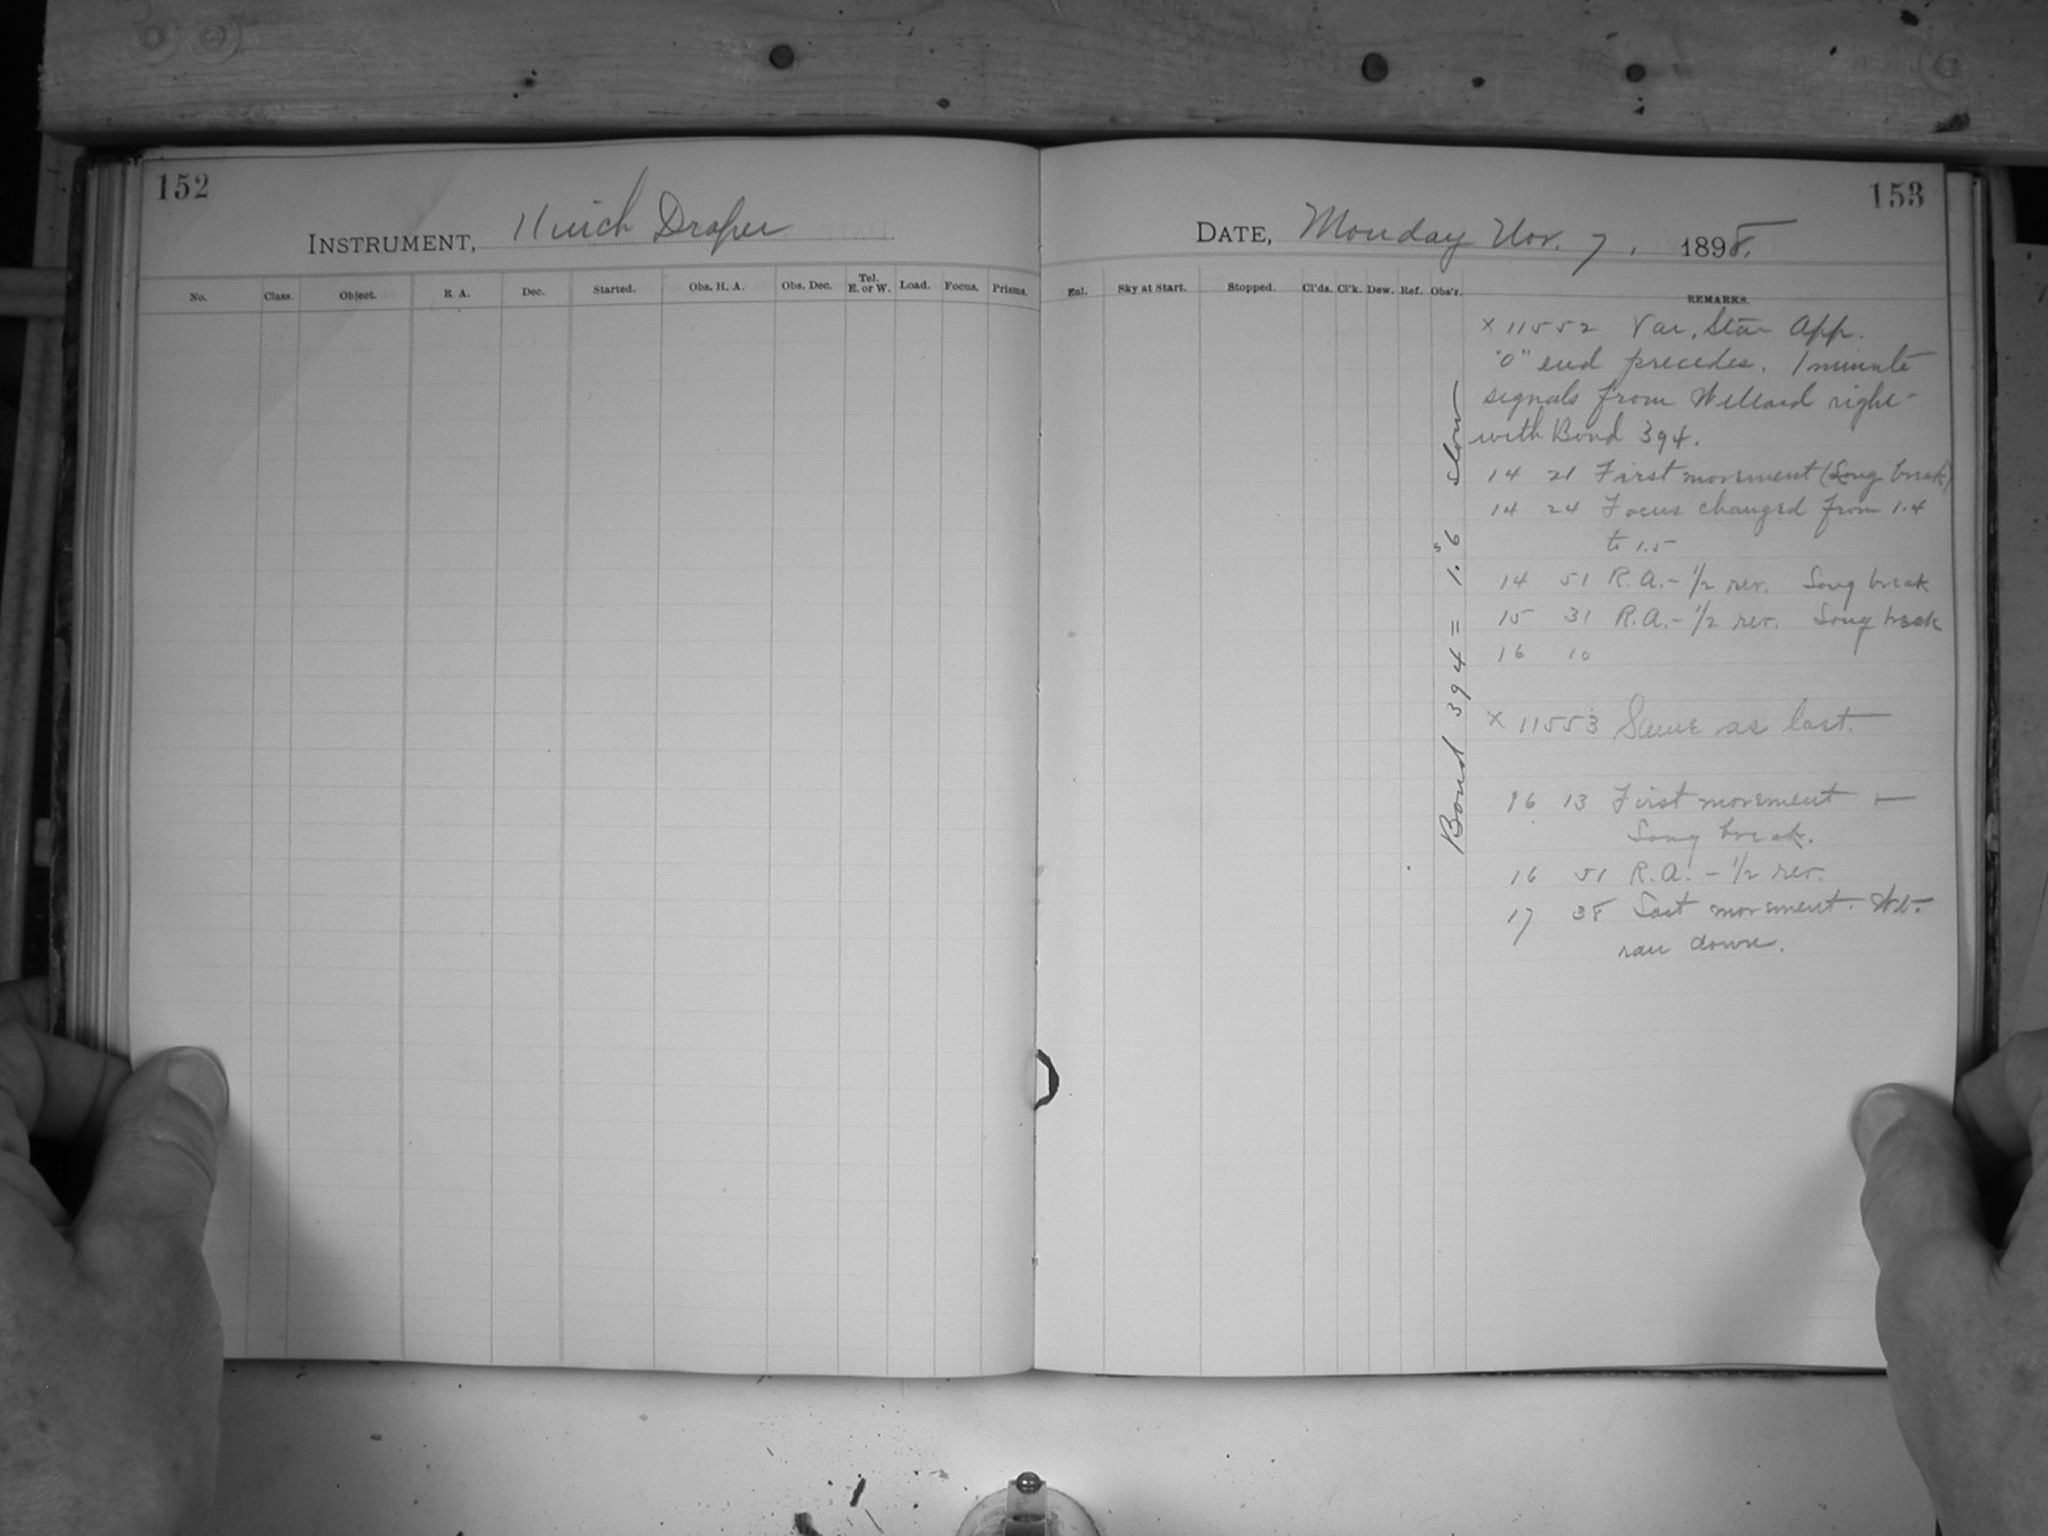 152
INSTRUMENT, 11 inch Draper
No. Class. Object. R. A. Dec. Started. Obs. H. A. Obs. Dec. Tel. E. or W. Load. Focus. Prisms.
153
DATE, Monday Nov. 7, 1898.
Enl. Sky at Start. Stopped. Cl'ds. Cl'k. Dew. Ref. Obs'r. REMARKS.
X 11552 Var. Star App.
"0" end precedes. 1 minute
signals from Willard right
with Bond 394.
14 21 First movement (Long break)
14 24 Focus changed from 1.4
to 1.5
14 51 R.A. - 1/2 rev. Long break
15 31 R.A. - 1/2 rev. Long break
16 10
X 11553 Same as last.
16 13 First movement -
Long break.
16 51 R.A. - 1/2 rev.
17 38 Last movement. Wt.
ran down.
Bond 394 = 1.s6 slow